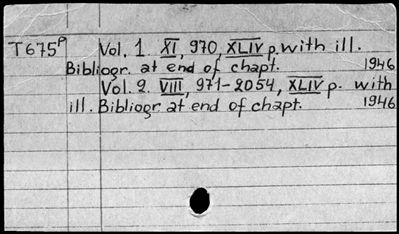 T675ᵖ Vol. 1 XI, 970, XLIV p. with ill.
Bibliogr. at end of chapt. 1946
Vol. 2. VIII, 971-2054, XLIV p. with
ill. Bibliogr at end of chapt. 1946